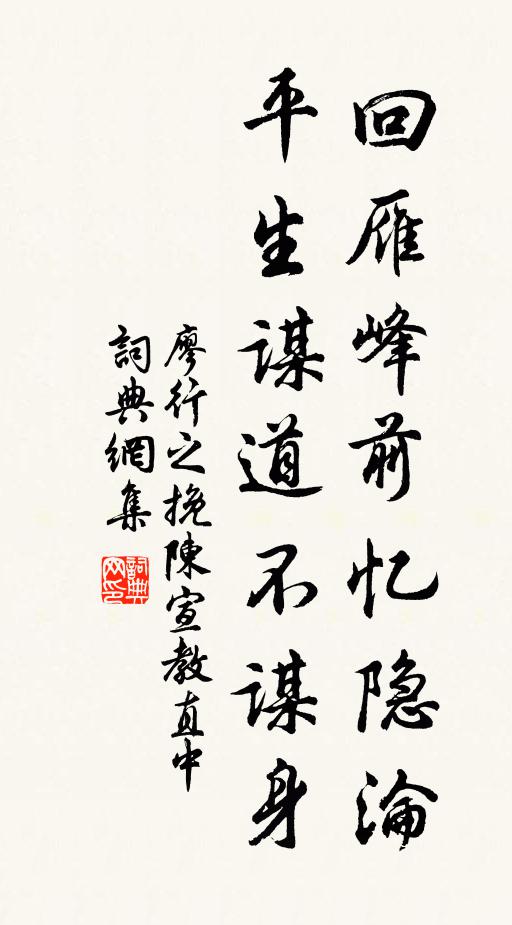 回雁峰前忆隐淪
平生谋道不谋身
廖行之挽陳宣教直中
詞典網集
詞典网印